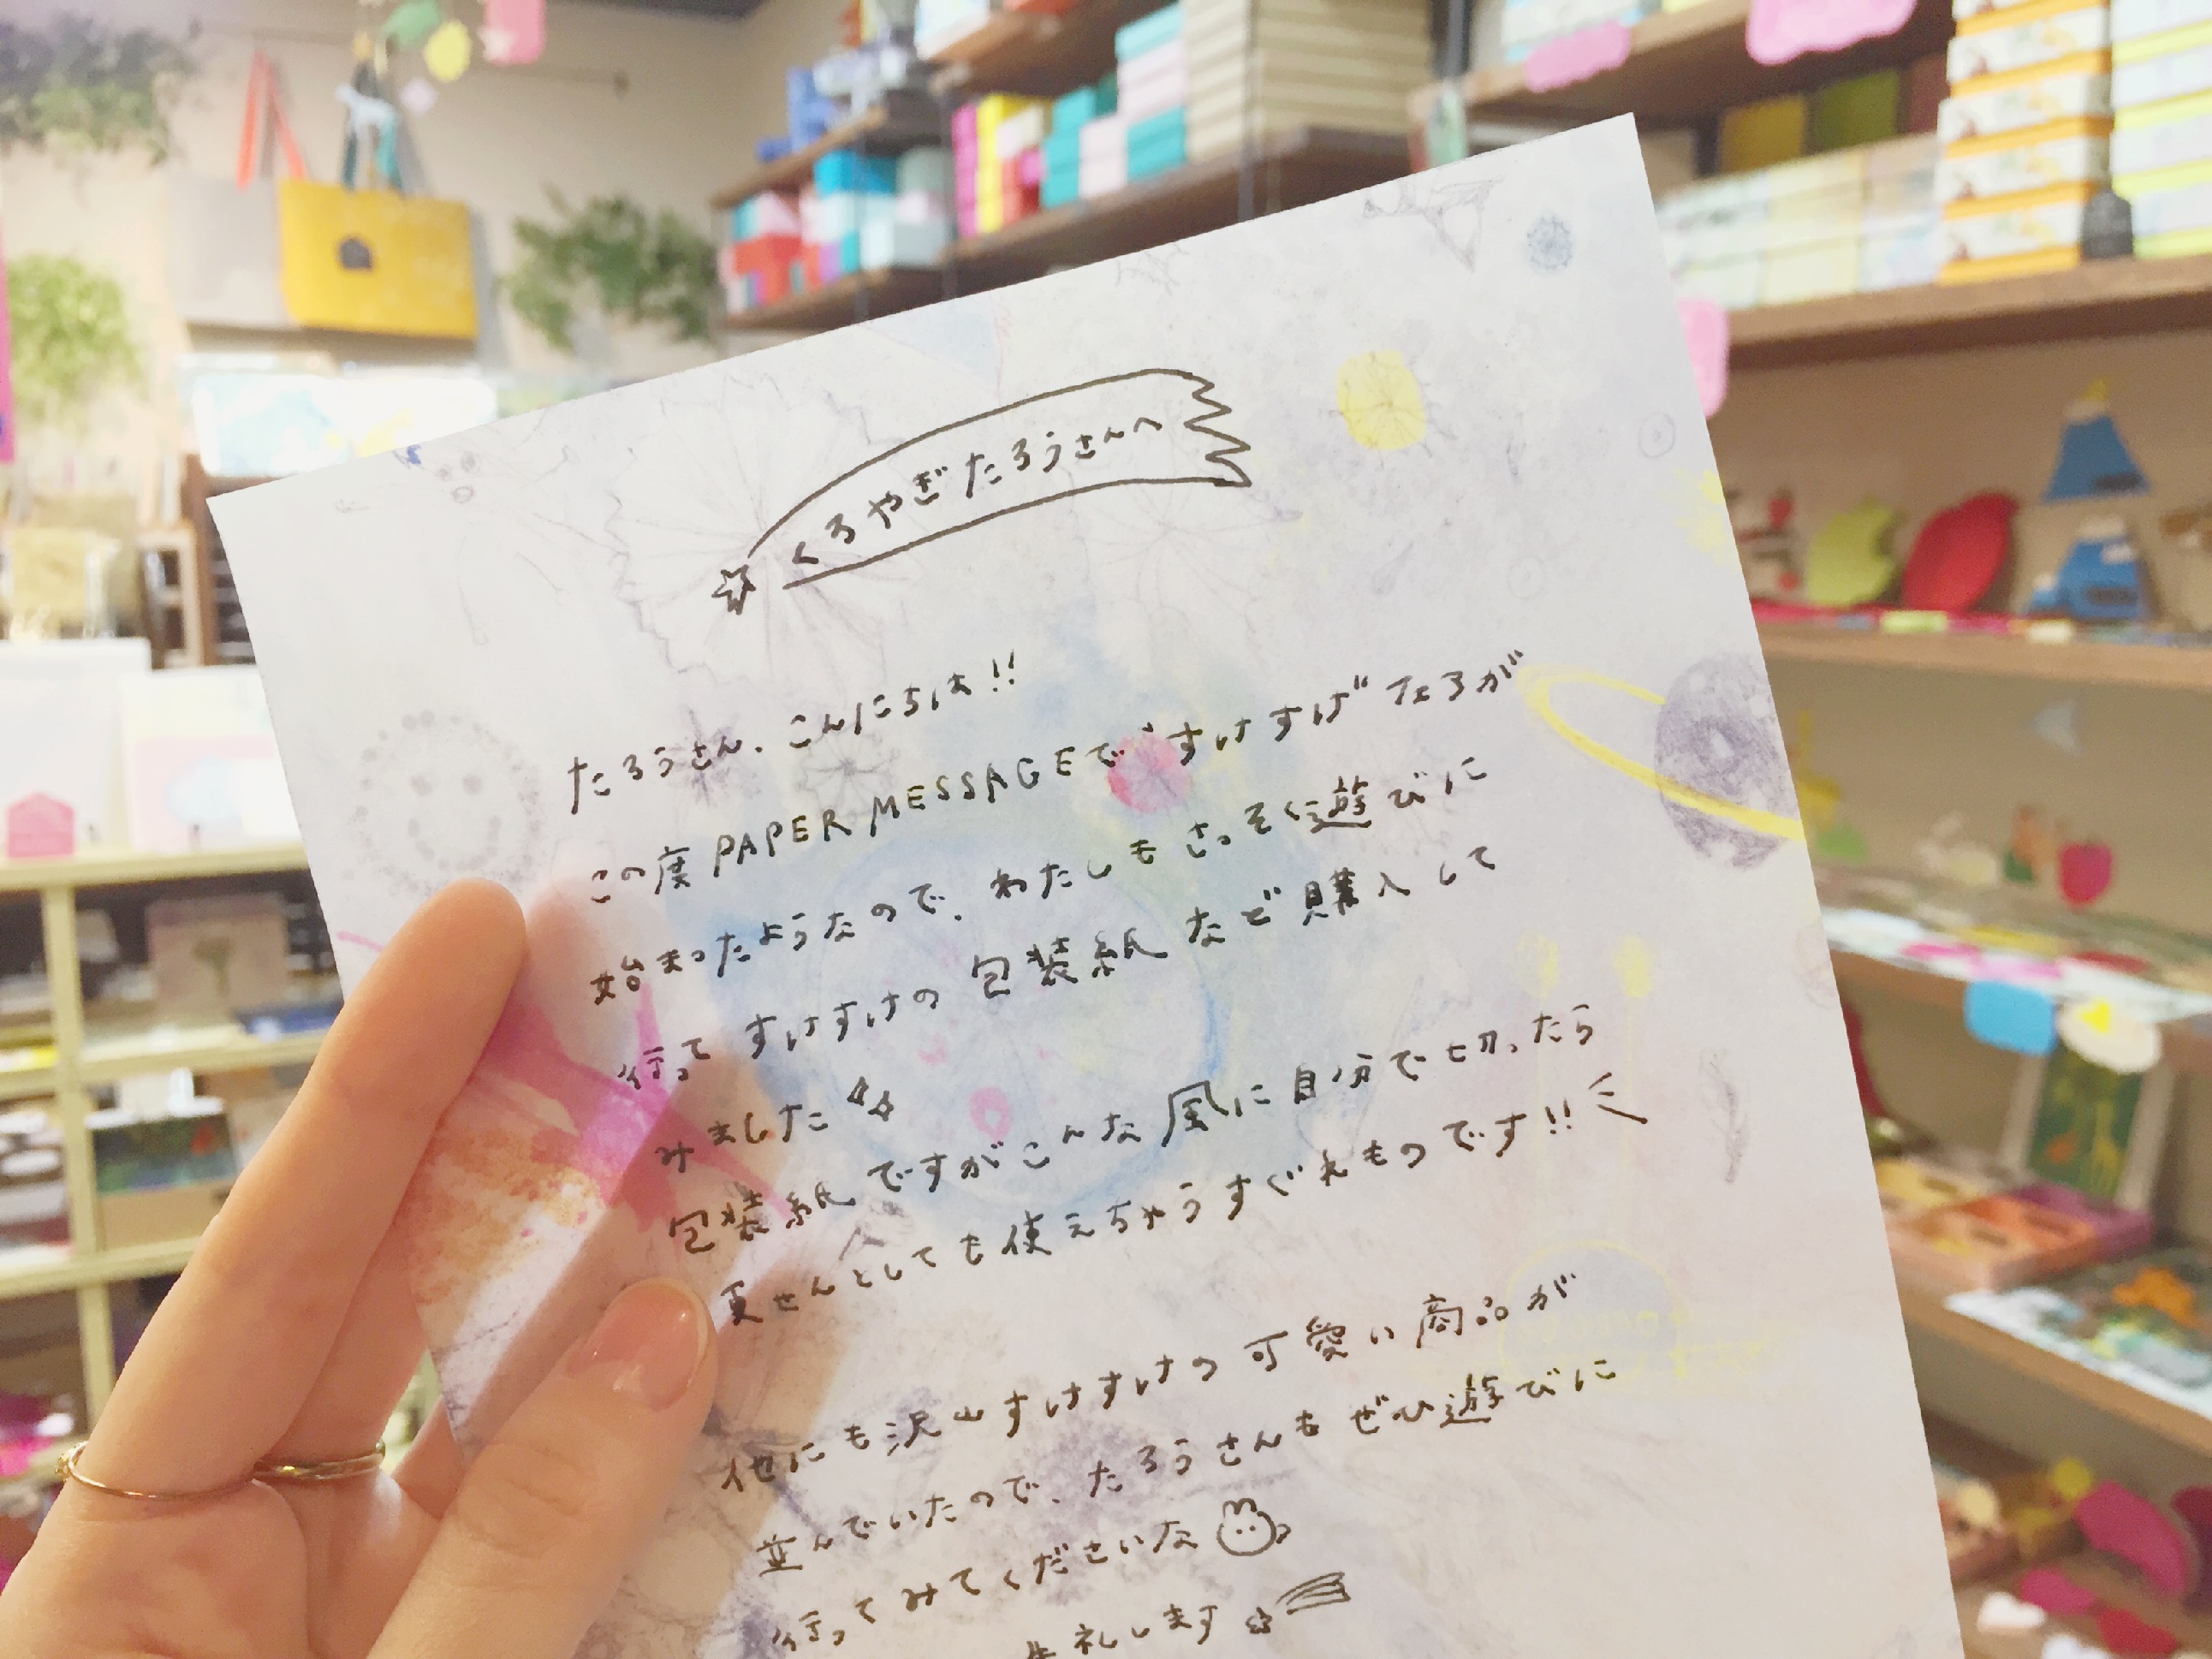 くろやぎたろうさんへ
たろうさん、こんにちは!!
この度PAPER MESSAGEで"すけすけ"なるが
始まったようなので、わたしもさっそく遊びに
行ってすけすけの包装紙など購入して
みました
包装紙ですがこんな風に自分で切ったら
夏せんとしても使えちゃうすぐれものです!!
他にも沢山すけすけの可愛い商品が
並んでいたので、たろうさんもぜひ遊びに
行ってみてくださいな
失礼します